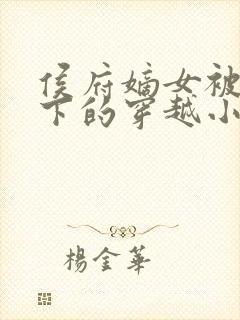 侯府嫡女被
下的穿越小
楊金華